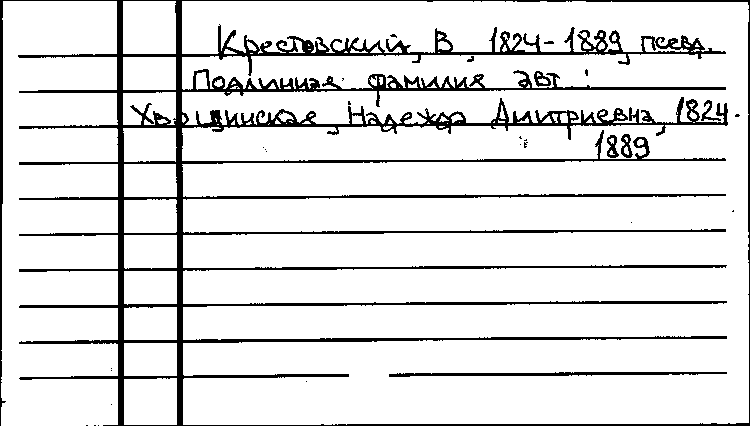 Крестовский, В, 1824-1889, псевд.
Подлинная фамилия авт.:
Хвощинская, Надежда Дмитриевна, 1824-
1889